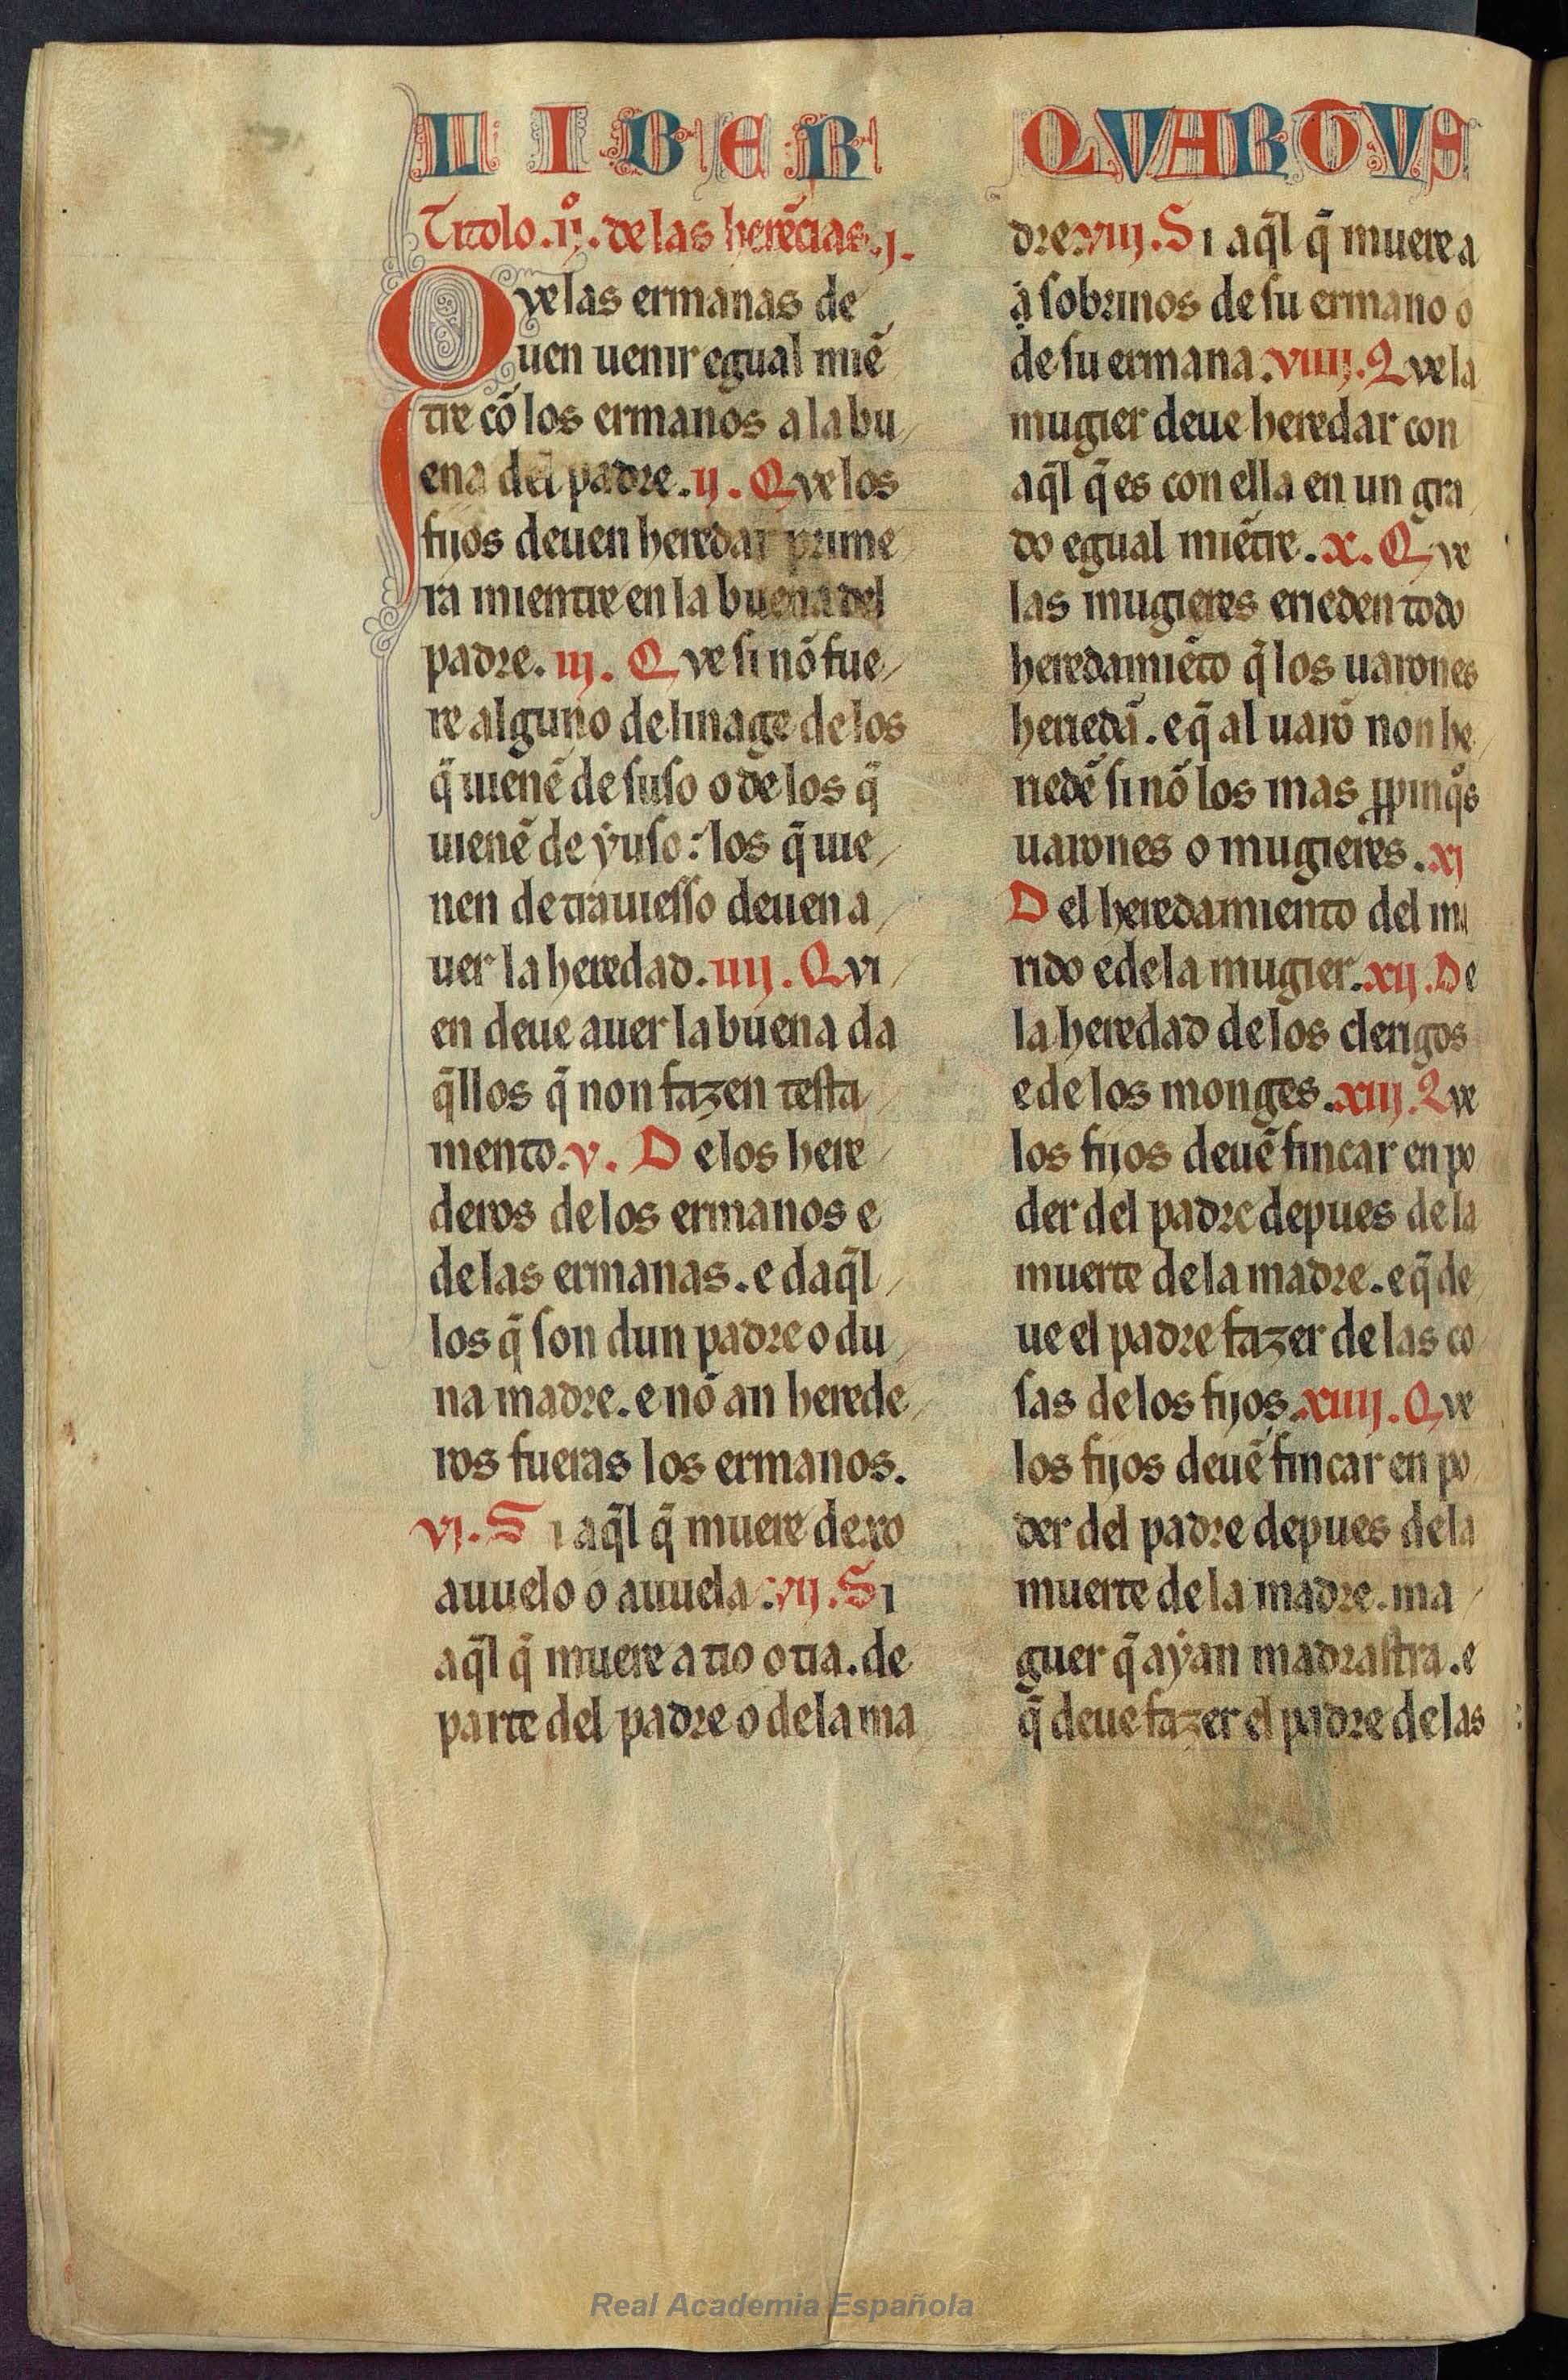 LIBER QVARTVS
Titolo .ij̊. de las herẽcias .j.
Q ve las ermanas de
uen uenir egual miẽ
tre cõ los ermanos a la bu
ena del padre .ij. Q ve los
fijos deuen heredar prime
ra mientre en la buena del
padre. iij. Q ve si nõ fue
re alguno de linage de los
q̃ uienẽ de suso o de los q̃
uienẽ de yuso: los q̃ uie
nen de trauiesso deuen a
uer la heredad. iiij. Q vi
en deue auer la buena da
q̃llos q̃ non fazen testa
mento. v. D e los here
deros de los ermanos e
de las ermanas. e daq̃l
los q̃ son dun padre o du
na madre. e nõ an herede
ros fueras los ermanos.
vj. S i aq̃l q̃ muere dexo
auuelo o auuela. vij. S i
aq̃l q̃ muere a tio o tia. de
parte del padre o de la ma
dre. viij. S i aq̃l q̃ muere a
a sobrinos de su ermano o
de su ermana. viiij. Q ve la
mugier deue heredar con
aq̃l q̃ es con ella en un gra
do egual miẽtre. x. Q ve
las mugieres erieden todo
heredamiẽto q̃ los uarones
heriedã. e q̃ al uarõ non he
riedẽ si nõ los mas ꝓpinq̊s
uarones o mugieres. xj
D el heredamiento del ma
rido e de la mugier. xij. D e
la heredad de los clerigos
e de los monges. xiij. Q ve
los fijos deuẽ fincar en po
der del padre depues de la
muerte de la madre. e q̃ de
ue el padre fazer de las co
sas de los fijos. xiiij. Q ve
los fijos deuẽ fincar en po
der del padre depues de la
muerte de la madre. ma
guer q̃ ayan madrastra. e
q̃ deue fazer el padre de las
Real Academia Española